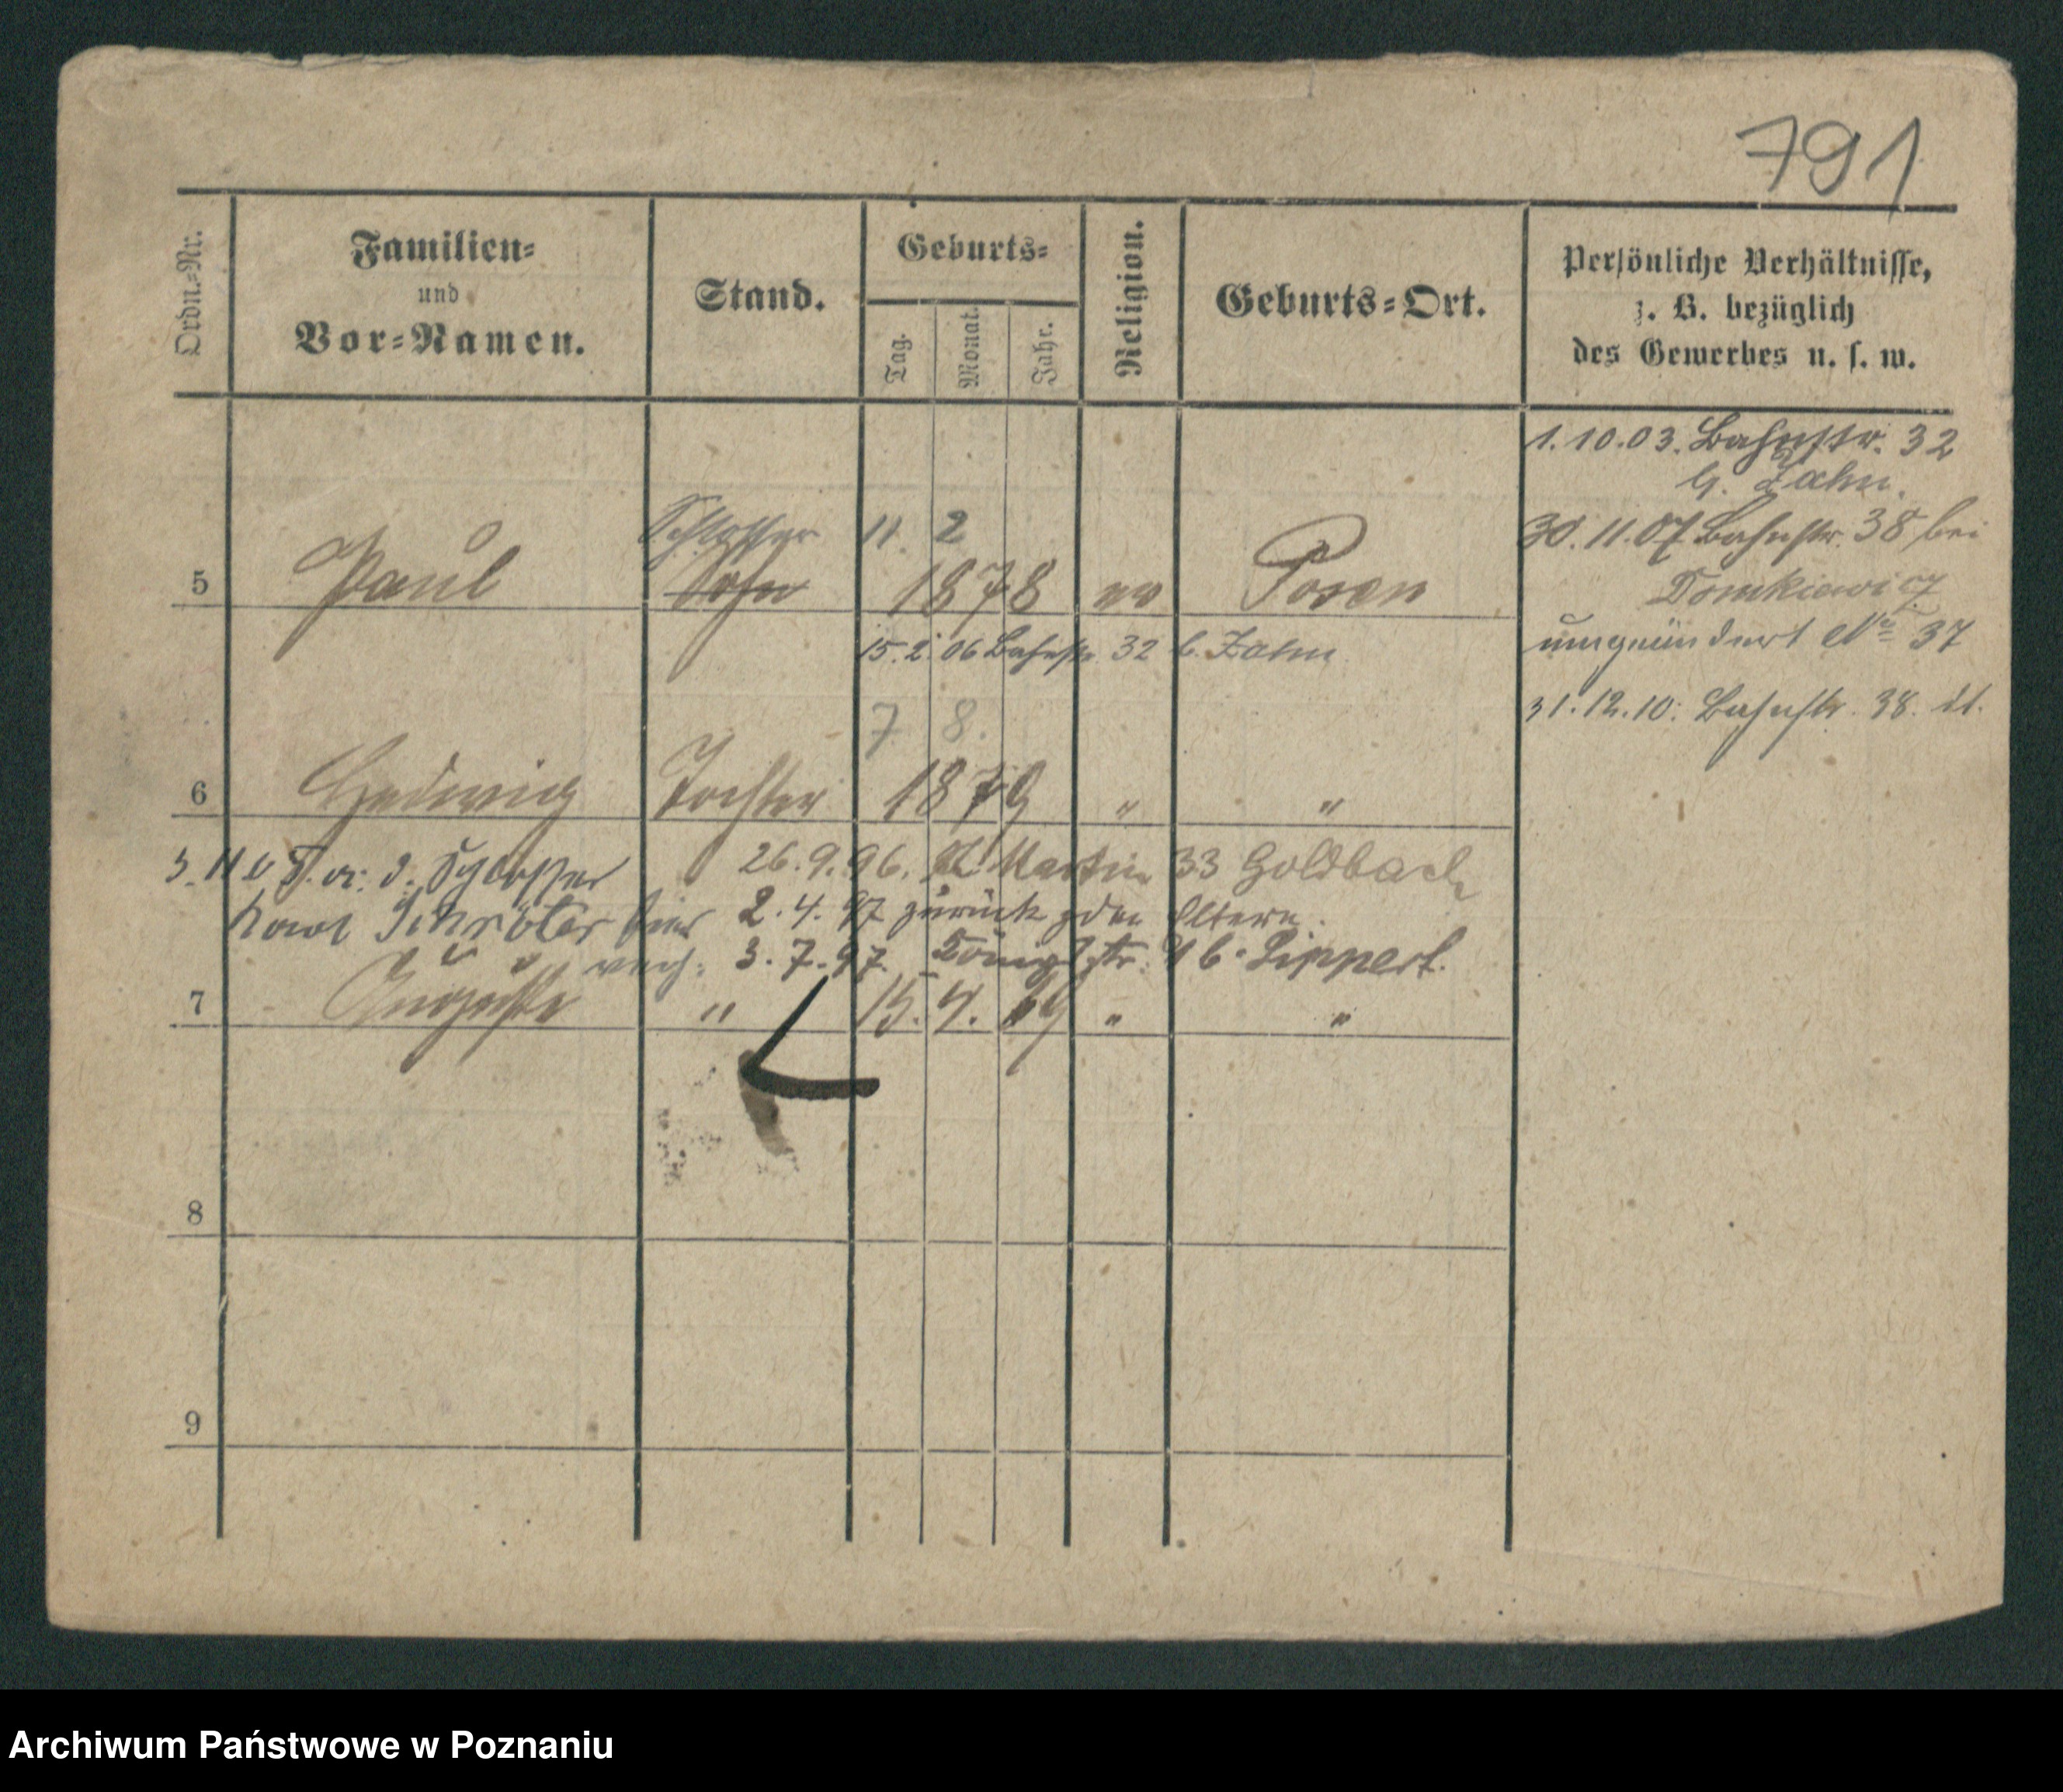 791
Ordn.-Nr.
Familien-
und
Vor-Namen.
Stand.
Geburts-
Tag.
Monat.
Jahr.
Religion.
Geburts-Ort.
Persönliche Verhältnisse,
z. B. bezüglich
des Gewerbes u. s. w.
1.10.03. Bahnstr. 32
b. Zahn.
30.11.07 Bahnstr. 38 bei
Tomkiewicz
umgeändert No 37
31.12.10. Bahnstr. 38.
Schlosser 11. 2
5 Paul Sohn 1878 ev Posen
15.2.06 Bahnstr. 32 b. Zahn
7 8.
6 Hedwig Tochter 1879 " "
26.9.96. St. Martin 33 Goldbach
Schlosser
2.4.97 zurück z den Eltern.
Karl Schröter hier
3.7.97. Königstr. 16. Lippert.
7 Auguste " 15. 4. 69 " "
8
9
Archiwum Państwowe w Poznaniu